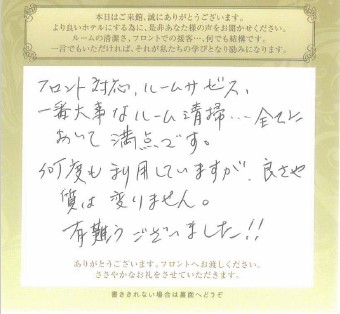 本日はご来館、誠にありがとうございます。
より良いホテルにする為に、是非あなた様の声をお聞かせください。
ルームの清潔さ、フロントでの接客…、何でも結構です。
一言でもいただければ、それが私たちの学びとなり励みになります。
フロント対応、ルームサービス、
一番大事なルーム清掃…全てに
おいて満点です。
何度も利用していますが、良さや
質は変りません。
有難うございました!!
ありがとうございます。フロントへお渡しください。
ささやかなお礼をさせていただきます。
書ききれない場合は裏面へどうぞ